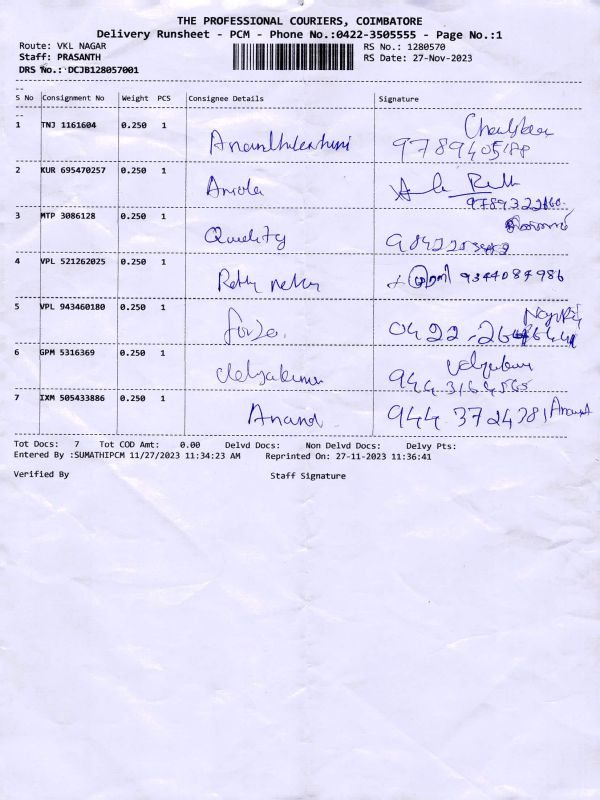 THE PROFESSIONAL COURIERS, COIMBATORE
Delivery Runsheet - PCM - Phone No.:0422-3505555 - Page No.:1
Route: VKL NAGAR RS No.: 1280570
Staff: PRASANTH RS Date: 27-Nov-2023
DRS No.: DCJB128057001
--
S No Consignment No Weight PCS Consignee Details Signature
--
1 TNJ 1161604 0.250 1
9789405188
2 KUR 695470257 0.250 1
3 MTP 3086128 0.250 1 Quality
4 VPL 521262025 0.250 1 9344084986
5 VPL 943460180 0.250 1
6 GPM 5316369 0.250 1 Velyakumar
944 3164565
7 IXM 505433886 0.250 1 Anand 944 3724381 Anand
Tot Docs: 7 Tot COD Amt: 0.00 Delvd Docs: Non Delvd Docs: Delvy Pts:
Entered By :SUMATHIPCM 11/27/2023 11:34:23 AM Reprinted On: 27-11-2023 11:36:41
Verified By Staff Signature